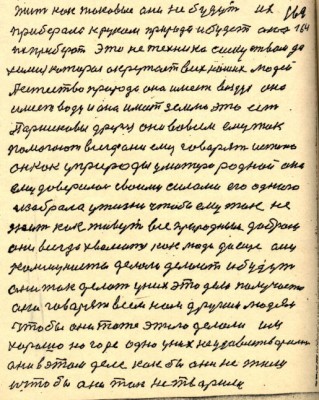 жит как таковые они не будут их 164
приберала к рукам природа и будет она 164
их приберот Это не техника самотвал да
химия которая окружает всех наших людей
Естество природа она имеет воздух она
имеет воду и она имеет землю это есть
они во всем ему так
помогают всегда они ему говарят
он как у природы у матери родной она
ему доверилася своими силами его одного
избрала у жизни чтобы ему так не
как живут все природные
они всегда как люди да еще они
коммунисты дело делают и будут
они так делать у них это дело получается
они говарят всем нам другим людям
чтобы они тоже этого делали им
хорошо но горе одно у них
они в этом деле как бы они не жили
и что бы они так не творили